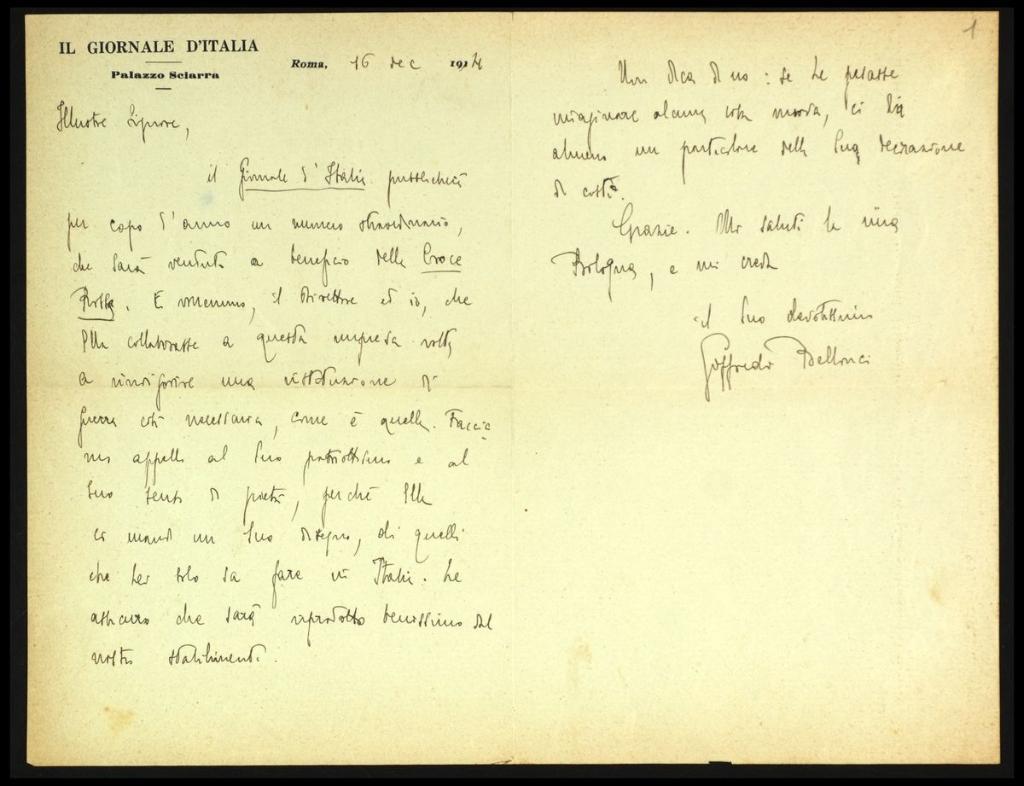 IL GIORNALE D'ITALIA
Palazzo Sciarra
Roma, 16 dec 1914
Illustre Signore,
il Giornale d'Italia pubblicherà
per capo d'anno un numero straordinario,
che sarà venduto a beneficio della Croce
Rossa. E vorremmo, il direttore ed io, che
Ella collaborasse a questa impresa volta
a rinvigorire una istituzione di
guerra così necessaria, come è quella. Faccia
mo appello al Suo patriottismo e al
Suo senso di pietà, perché Ella
ci mandi un Suo disegno, di quelli
che Lei solo sa fare in Italia. Le
assicuro che sarà riprodotto benissimo dal
nostro stabilimento.
1
Non dica di no: se Le pesasse
imaginare alcuna cosa nuova, ci dia
almeno un particolare della Sua decorazione
di costà.
Grazie. Mi saluti la mia
Bologna, e mi creda
il Suo devotissimo
Goffredo Bellonci